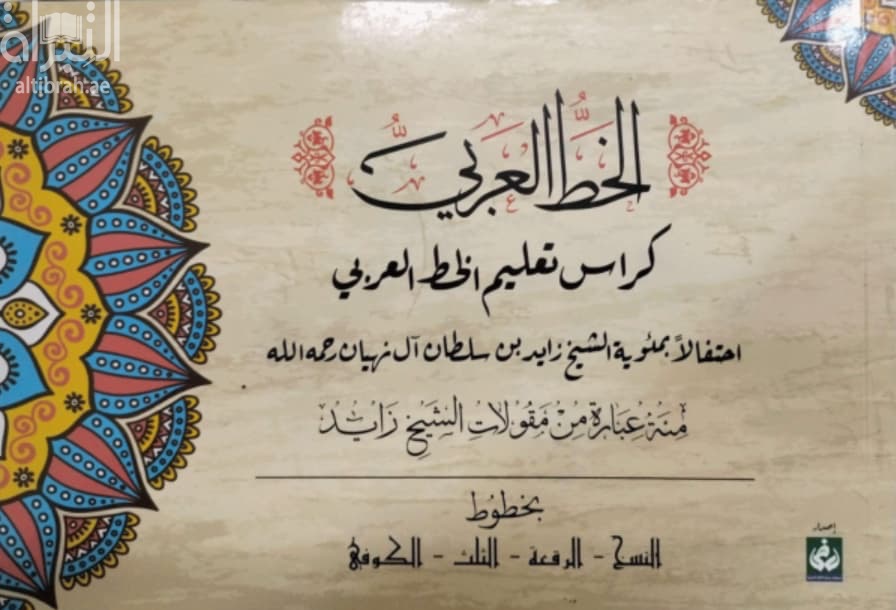 التبراه
altibrah.ae
الخط العربي
كراس تعليم الخط العربي
احتفالاً بمئوية الشيخ زايد بن سلطان آل نهيان رحمه الله
مئة عبارة من مقولات الشيخ زايد
بخطوط
النسخ - الرقعة - الثلث - الكوفي
إصدار